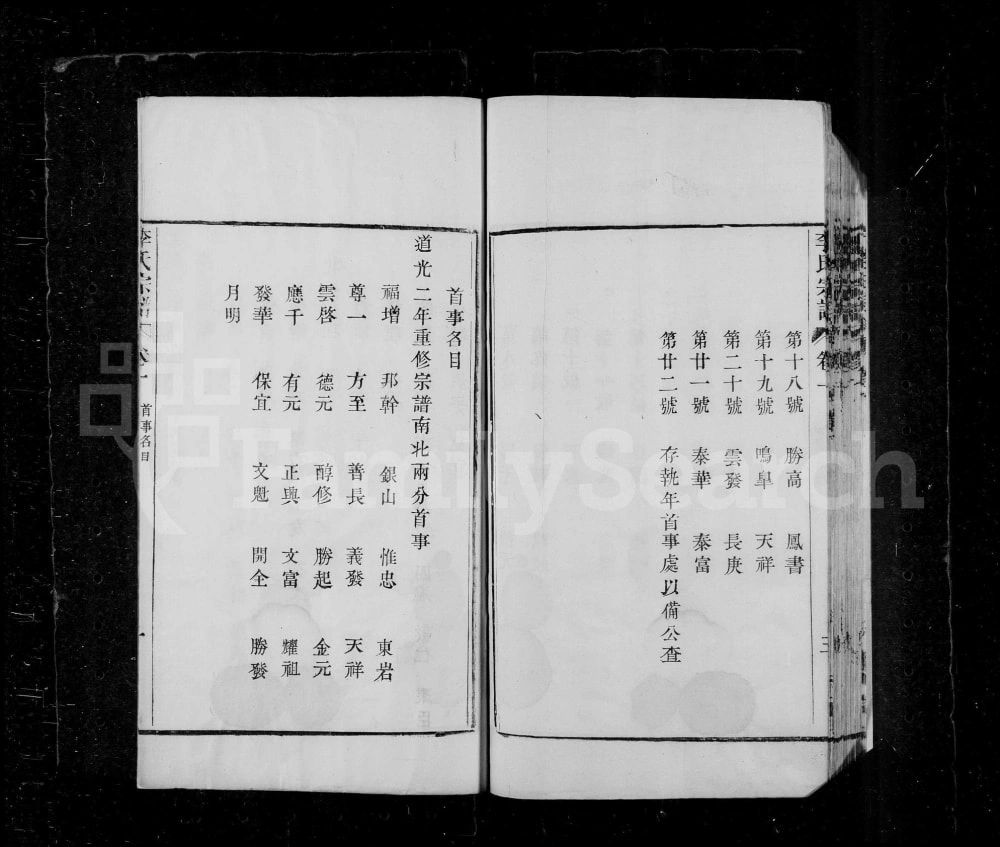 李氏宗譜 卷一 三
第十八號 勝高 鳳書
第十九號 鳴皐 天祥
第二十號 雲發 長庚
第廿一號 泰華 泰富
第廿二號 存執年首事處以備公查
首事名目
道光二年重修宗譜南北兩分首事
福增 邦幹 銀山 惟忠 東岩
尊一 方至 善長 義發 天祥
雲啓 德元 醇修 勝起 金元
應干 有元 正興 文富 耀祖
發華 保宜 文魁 開全 勝發
月明
李氏宗譜 卷一 首事名目 一
FamilySearch